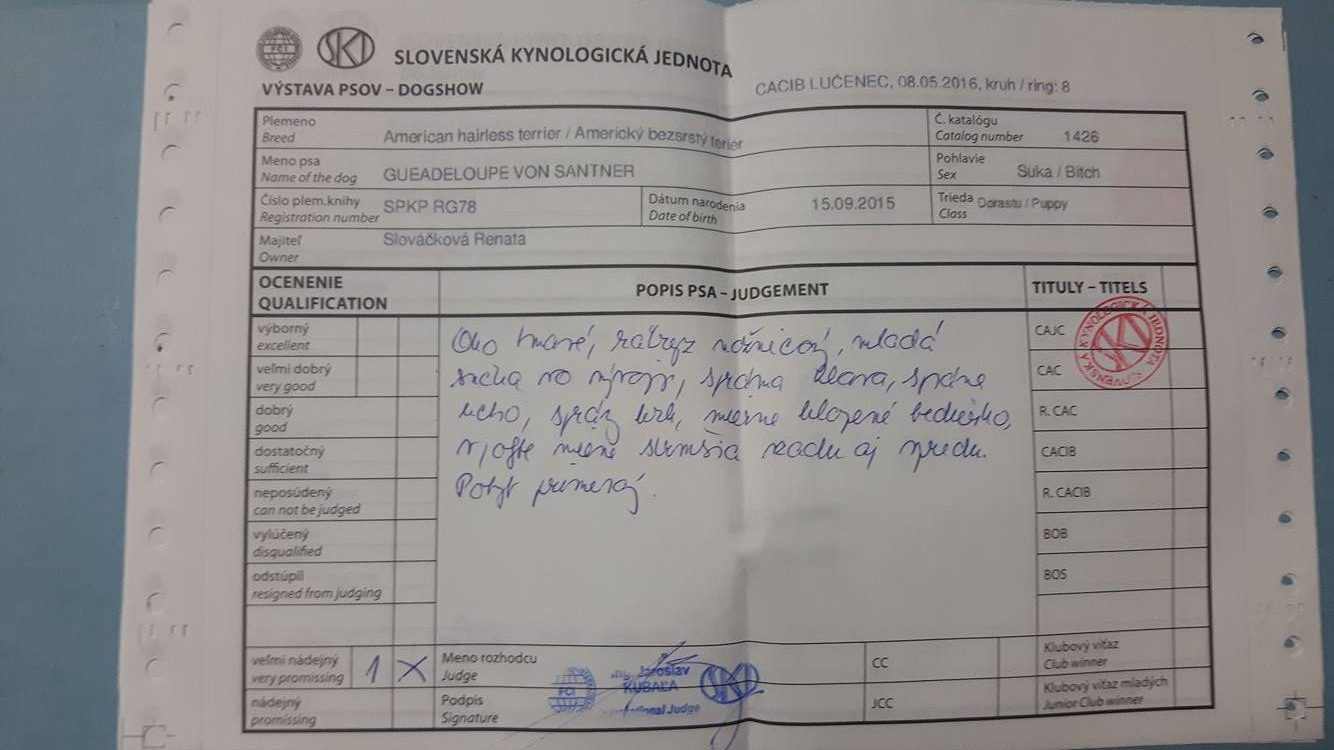 FCI SKJ SLOVENSKÁ KYNOLOGICKÁ JEDNOTA
VÝSTAVA PSOV – DOGSHOW
CACIB LUČENEC, 08.05.2016, kruh / ring: 8
Plemeno
Breed
American hairless terrier / Americký bezsrstý terier
Č. katalógu
Catalog number
1426
Meno psa
Name of the dog
GUEADELOUPE VON SANTNER
Pohlavie
Sex
Suka / Bitch
Číslo plem.knihy
Registration number
SPKP RG78
Dátum narodenia
Date of birth
15.09.2015
Trieda
Class
Dorastu / Puppy
Majiteľ
Owner
Slováčková Renata
OCENENIE
QUALIFICATION
POPIS PSA – JUDGEMENT
TITULY – TITELS
výborný
excellent
veľmi dobrý
very good
dobrý
good
dostatočný
sufficient
neposúdený
can not be judged
vylúčený
disqualified
odstúpil
resigned from judging
veľmi nádejný
very promissing
1 X
nádejný
promissing
Oko tmavé, nožnicový, mladá
suka vo správna hlava, správne
ucho, krk, mierne
mierne vzadu aj vpredu.
Pohyb primeraný.
CAJC
CAC
R. CAC
CACIB
R. CACIB
BOB
BOS
SLOVENSKÁ KYNOLOGICKÁ JEDNOTA
SKJ
Meno rozhodcu
Judge
Podpis
Signature
FCI
Jaroslav
KUBAĽA
Judge
SKJ
CC
JCC
Klubový víťaz
Club winner
Klubový víťaz mladých
Junior Club winner